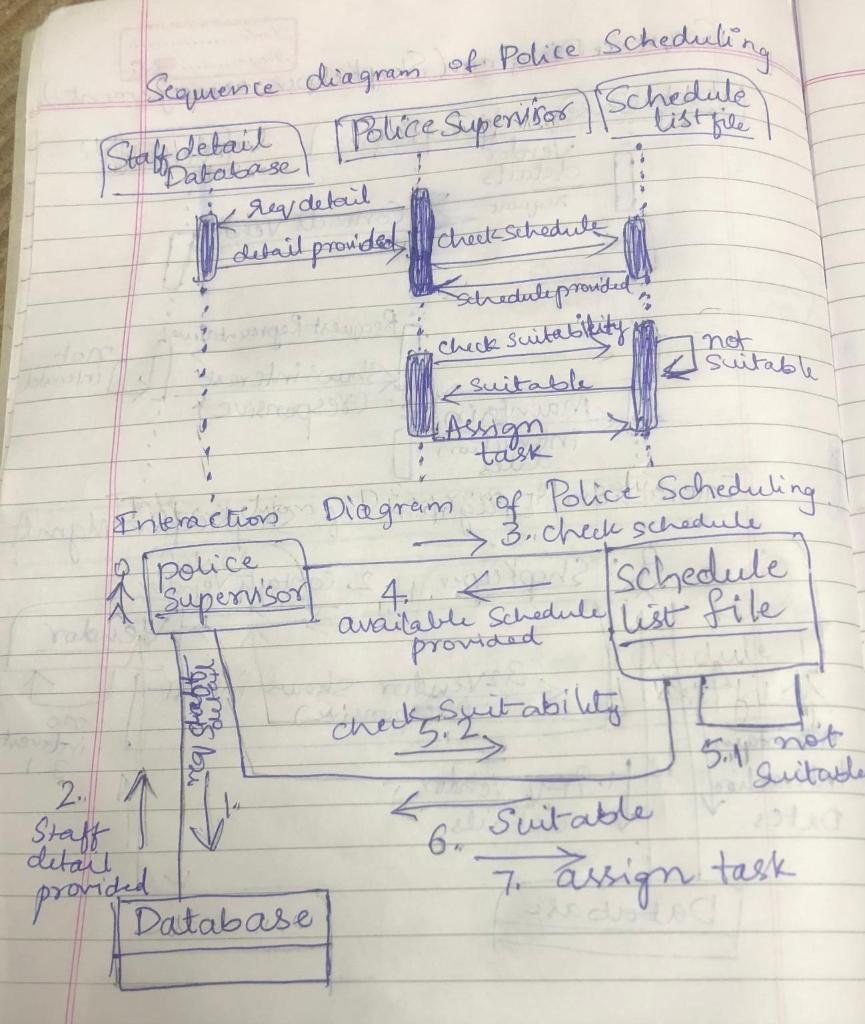 Sequence diagram of Police Scheduling
Staff detail
Database
Police Supervisor
Schedule
list file
req detail
detail provided
check schedule
schedule provided
check suitability
not
suitable
suitable
Assign
task
Interaction Diagram of Police Scheduling
3. check schedule
police
supervisor
schedule
list file
4.
available schedule
provided
req staff
detail
1.
check suitability
5.2
5.1 not
suitable
2.
Staff
detail
provided
6. Suitable
7. assign task
Database